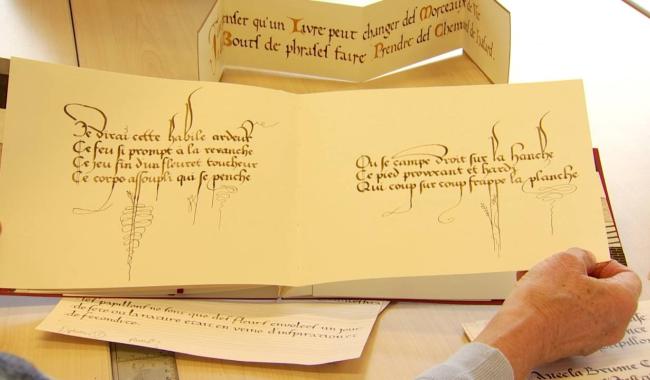 Penser qu'un Livre peut changer des Morceaux de Vie
Bouts de phrases faire Prendre des Chemins de hasard.
Je dirai cette habile ardeur
Ce feu si prompt à la revanche
Ce jeu fin d'un fleuret toucheur
Ce corps assoupli qui se penche
Ou se campe droit sur la hanche
Ce pied provocant et hardi
Qui coup sur coup frappe la planche
papillons ne sont que des fleurs envolées un jour
de fête ou la nature était en veine d'inspiration et
de fécondité.